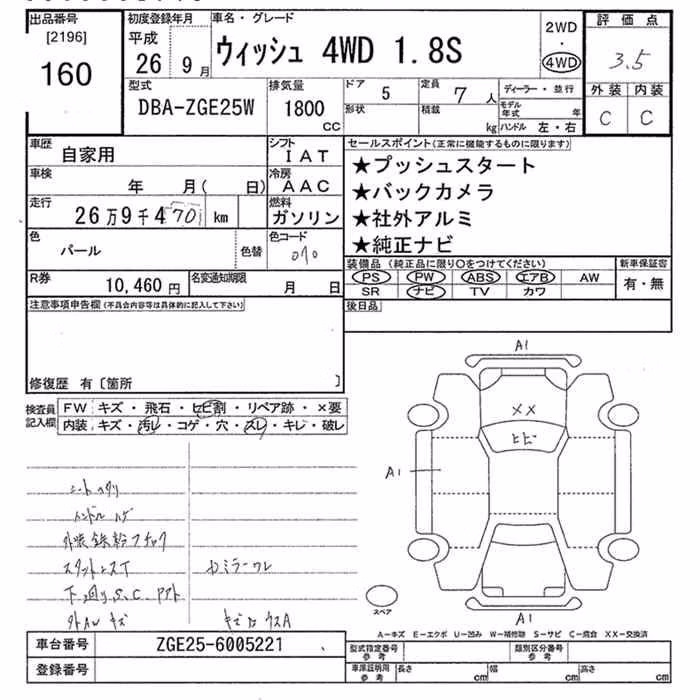 出品番号 初度登録年月 車名・グレード 2WD 評価点
[2196] 平成 ・
160 26 9月 ウィッシュ 4WD 1.8S 4WD 3.5
型式 排気量 ドア 5 定員 7人 ディーラー・並行 外装 内装
DBA-ZGE25W 1800 CC 形状 積載 kg モデル年式 年 C C
ハンドル 左・右
車歴 自家用 シフト IAT セールスポイント(正常に機能するものに限ります)
車検 年 月( 日) 冷房 AAC ★プッシュスタート
走行 26万9千470 km 燃料 ガソリン ★バックカメラ
★社外アルミ
色 パール 色替 色コード 070 ★純正ナビ
R券 10,460円 名変通知期限 月 日
装備品(純正品に限り〇をつけてください) 新車保証書
PS PW ABS エアB AW 有・無
SR ナビ TV カワ
注意事項申告欄(不具合内容等は具体的に記入して下さい) 後日品
修復歴 有〔箇所 〕
検査員記入欄 FW キズ・飛石・ヒビ割・リペア跡・×要
内装 キズ・汚レ・コゲ・穴・スレ・キレ・破レ
A1
XX
ヒビ
A1
A1
スペア
ハンドル ハゲ
外AW キズ
A－キズ E－エクボ U－凹み W－補修跡 S－サビ C－腐食 XX－交換済
車台番号 ZGE25-6005221 型式指定番号 参考 類別区分番号 参考
登録番号 車庫証明用 参考 長さ cm 幅 cm 高さ cm